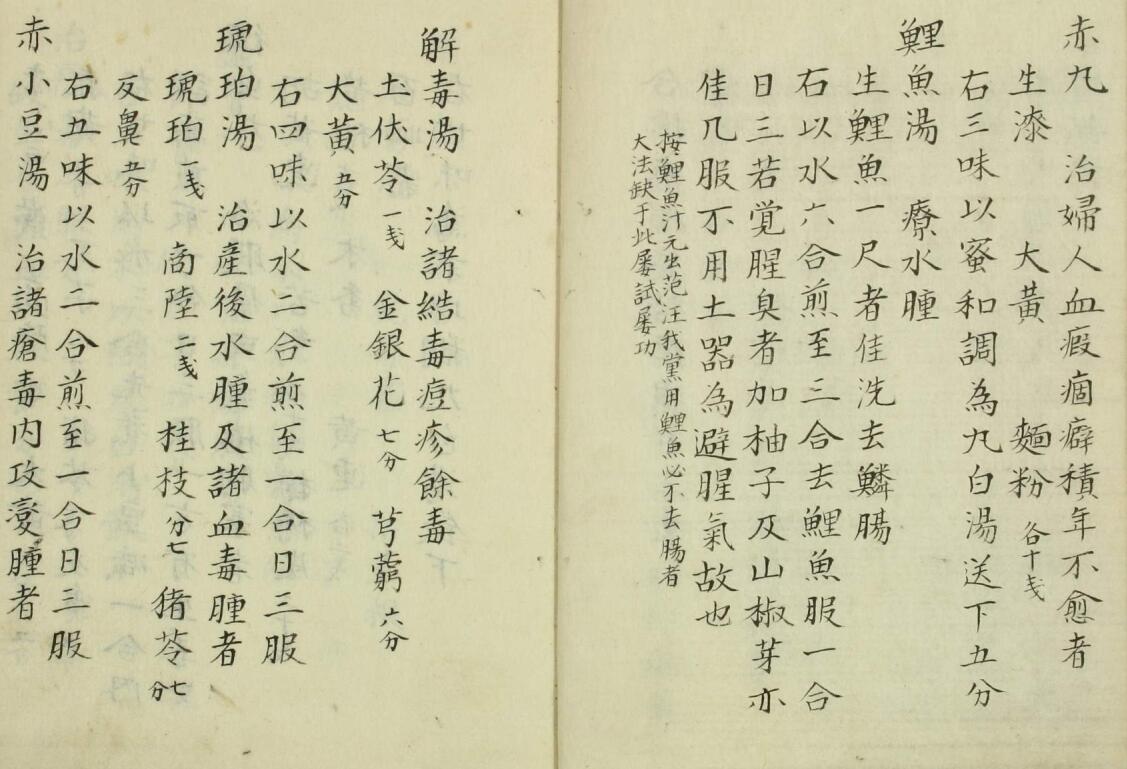 赤丸　治婦人血瘕痼癖積年不愈者
生漆　大黃　麵粉各十戔
右三味以蜜和調為丸白湯送下五分
鯉魚湯　療水腫
生鯉魚一尺者佳洗去鱗腸
右以水六合煎至三合去鯉魚服一合
日三若覚腥臭者加柚子及山椒芽亦
佳凡服不用土器為避腥氣故也
按鯉魚汁元出范汪我黨用鯉魚必不去腸者
大法缺于此屡試屡功
解毒湯　治諸結毒痘疹餘毒
土伏苓一戔　金銀花七分　芎藭六分
大黃五分
右四味以水二合煎至一合日三服
琥珀湯　治產後水腫及諸血毒腫者
琥珀一戔　商陸二戔　桂枝七分　猪苓七分
反鼻五分
右五味以水二合煎至一合日三服
赤小豆湯　治諸瘡毒内攻変腫者